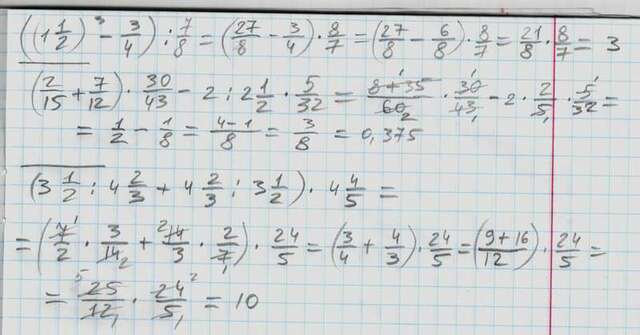 ((1 1/2)³ - 3/4) : 7/8 = (27/8 - 3/4) · 8/7 = (27/8 - 6/8) · 8/7 = 21/8 · 8/7 = 3
(2/15 + 7/12) · 30/43 - 2 : 2 1/2 · 5/32 = 8+35/60 2 · 1 30/43 1 - 2 · 2/5 1 · 5 1/32 =
= 1/2 - 1/8 = 4-1/8 = 3/8 = 0,375
(3 1/2 : 4 2/3 + 4 2/3 : 3 1/2) · 4 4/5 =
= (7 1/2 · 3/14 2 + 2 14/3 · 2/7 1) · 24/5 = (3/4 + 4/3) · 24/5 = (9+16/12) · 24/5 =
= 5 25/12 1 · 24 2/5 1 = 10